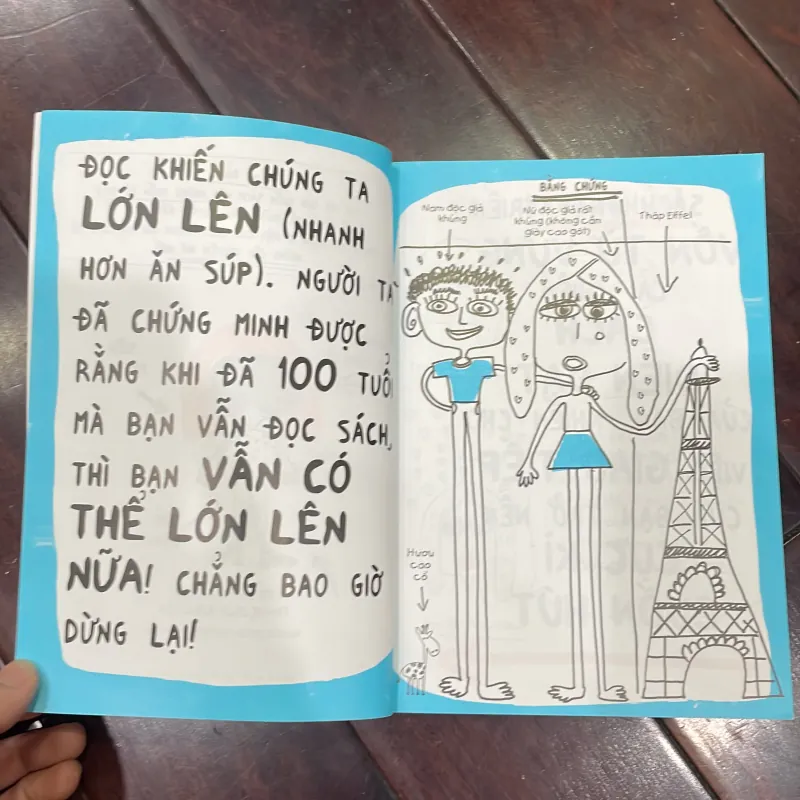 ĐỌC KHIẾN CHÚNG TA
LỚN LÊN (NHANH
HƠN ĂN SÚP). NGƯỜI TA
ĐÃ CHỨNG MINH ĐƯỢC
RẰNG KHI ĐÃ 100 TUỔI
MÀ BẠN VẪN ĐỌC SÁCH,
THÌ BẠN VẪN CÓ
THỂ LỚN LÊN
NỮA! CHẲNG BAO GIỜ
DỪNG LẠI!
BẰNG CHỨNG
Nam độc giả
khủng
Nữ độc giả rất
khủng (không cần
giày cao gót)
Tháp Eiffel
Hươu
cao
cổ